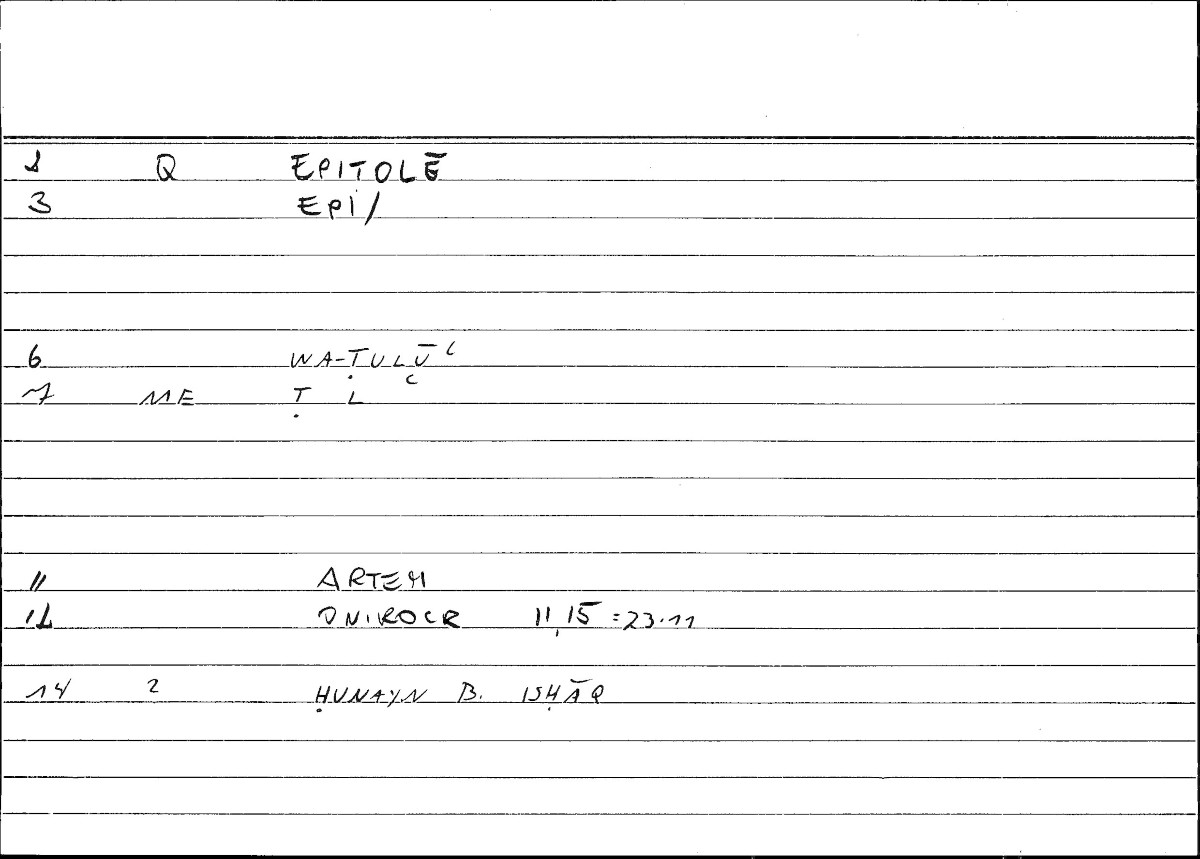 1 Q EPITOLĒ
3 EPI/
6 WA-ṬULŪʿ
7 ME Ṭ L ʿ
11 ARTEM
12 ONIROCR 11,15 =23.11
14 2 ḤUNAYN B. ISḤĀQ